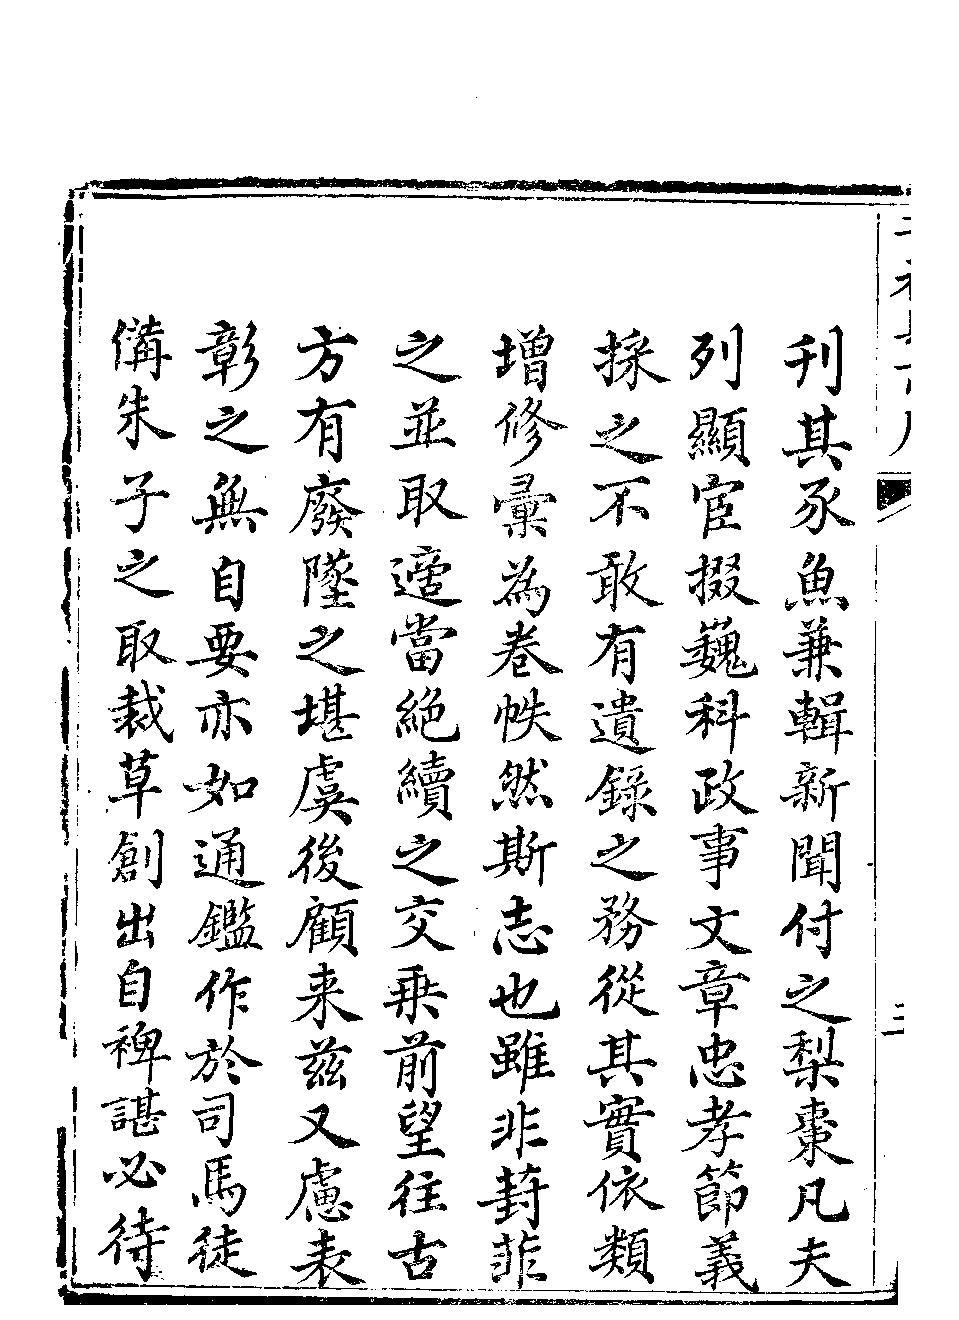 刊其豕魚兼輯新聞付之梨棗凡夫
列顯宦掇巍科政事文章忠孝節義
採之不敢有遺錄之務從其實依類
增修彙為卷帙然斯志也雖非葑菲
之並取適當絕續之交乗前望往古
方有廢墜之堪虞後顧来茲又慮表
彰之無自要亦如通鑑作於司馬徒
備朱子之取裁草創出自裨諶必待